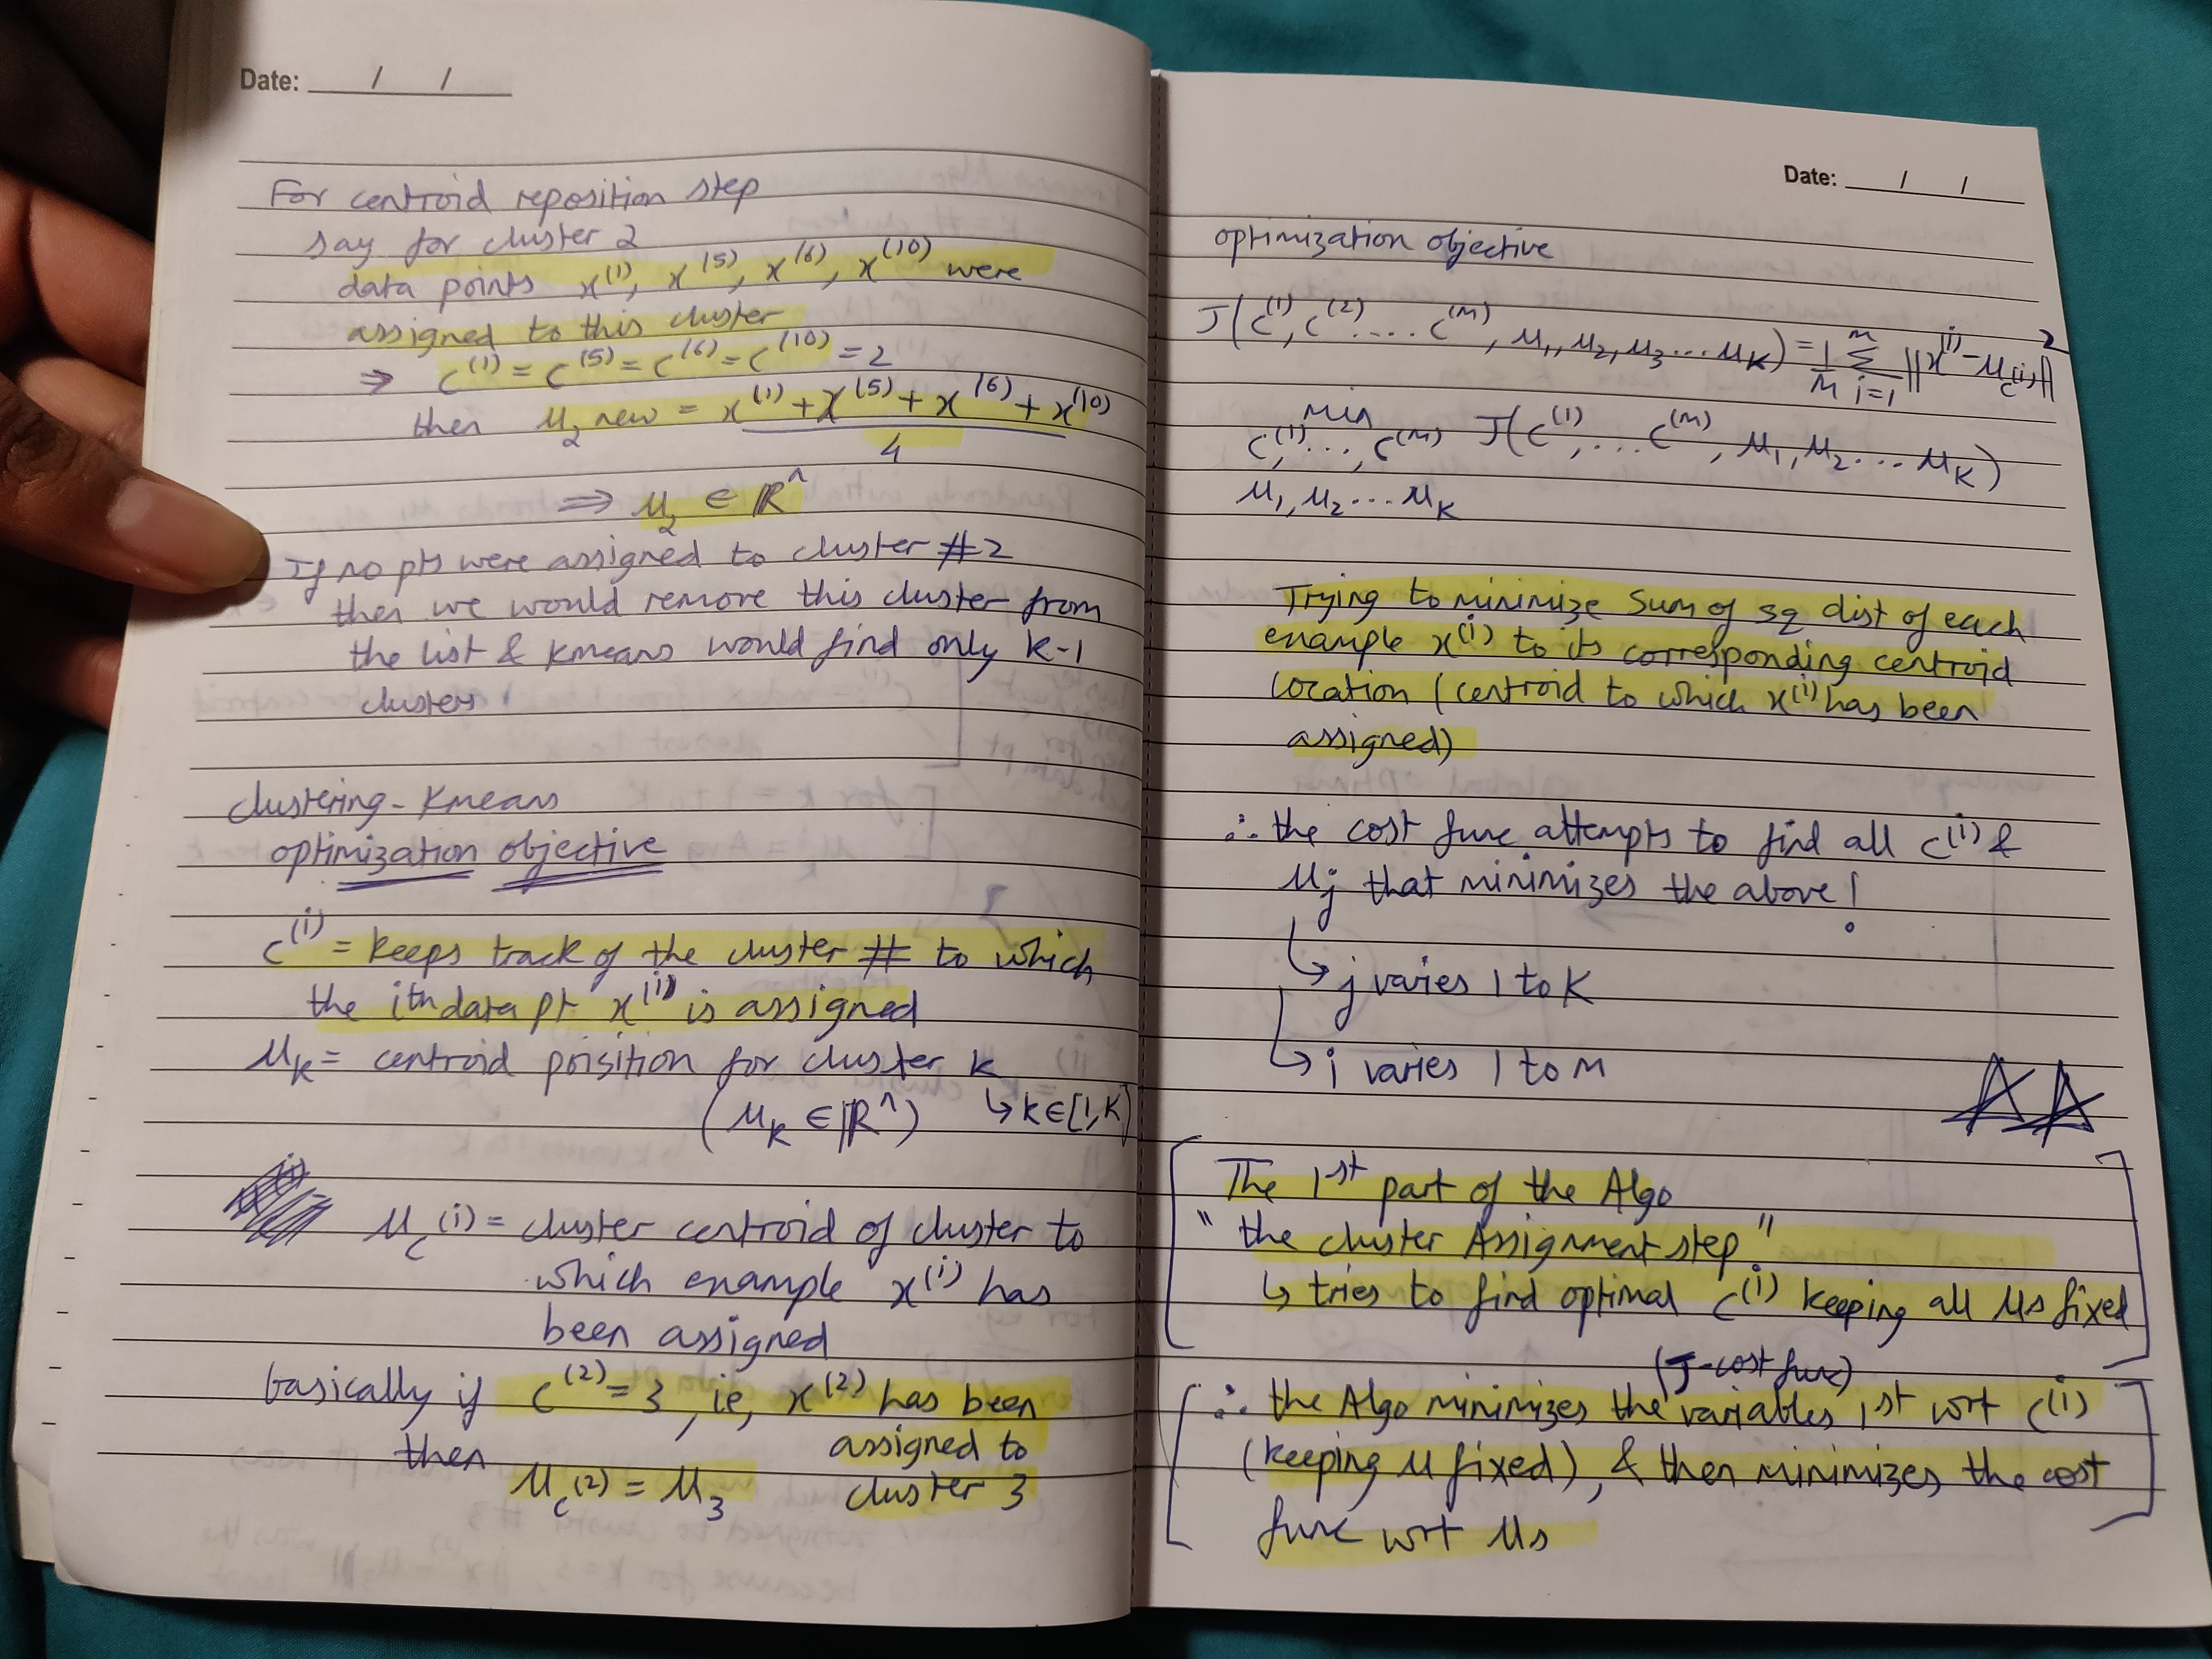 Date: __/__/__
For centroid reposition step
say for cluster 2
data points x^(1), x^(5), x^(6), x^(10) were
assigned to this cluster
⇒ c^(1) = c^(5) = c^(6) = c^(10) = 2
then μ_2 new = x^(1) + x^(5) + x^(6) + x^(10)
4
⇒ μ_2 ∈ ℝ^n
If no pts were assigned to cluster #2
then we would remove this cluster from
the list & kmeans would find only k-1
clusters
clustering - Kmeans
optimization objective
c^(i) = keeps track of the cluster # to which
the ith data pt x^(i) is assigned
μ_k = centroid poisition for cluster k
(μ_k ∈ ℝ^n) ↳ k ∈ [1, K]
μ_c^(i) = cluster centroid of cluster to
which example x^(i) has
been assigned
basically if c^(2) = 3, ie, x^(2) has been
assigned to
then μ_c^(2) = μ_3 cluster 3
Date: __/__/__
optimization objective
J(c^(1), c^(2) .... c^(m), μ_1, μ_2, μ_3 ... μ_K) = 1/m Σ_{i=1}^m ||x^(i) - μ_c^(i)||^2
min
c^(1), ..., c^(m) J(c^(1), ... c^(m), μ_1, μ_2 ... μ_K)
μ_1, μ_2 ... μ_K
Trying to minimize sum of sq dist of each
example x^(i) to its corresponding centroid
location (centroid to which x^(i) has been
assigned)
∴ the cost func attempts to find all c^(i) &
μ_j that minimizes the above!
↳ j varies 1 to K
↳ i varies 1 to m
The 1st part of the Algo
"the cluster Assignment step"
↳ tries to find optimal c^(i) keeping all μs fixed
(J-cost func)
∴ the Algo minimizes the variables 1st wrt c^(i)
(keeping μ fixed), & then minimizes the cost
func wrt μs